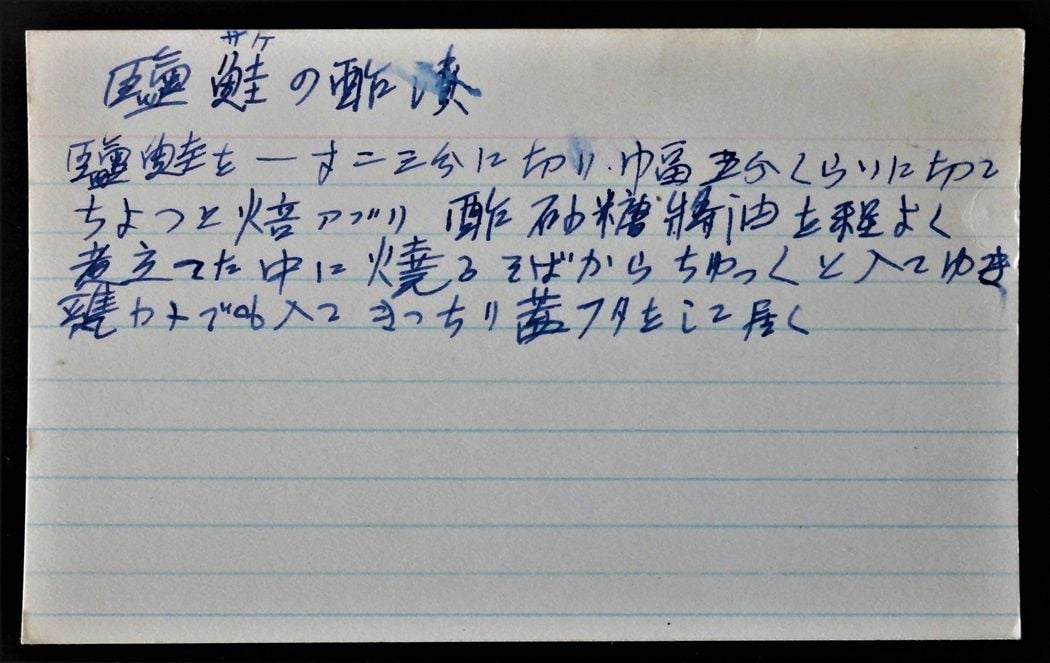 サケ
鹽鮭の酢漬
鹽鮭を一寸二三分に切り巾幅五分くらいに切つて
ちよつと焙アブリ 酢砂糖醤油を程よく
煮立てた中に燒るそばからちゆつくと入てゆき
甕カメでも入て きつちり蓋フタをして居く